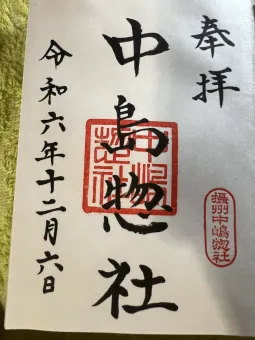 奉拝
中島惣社
摂州中嶋惣社
令和六年十二月六日